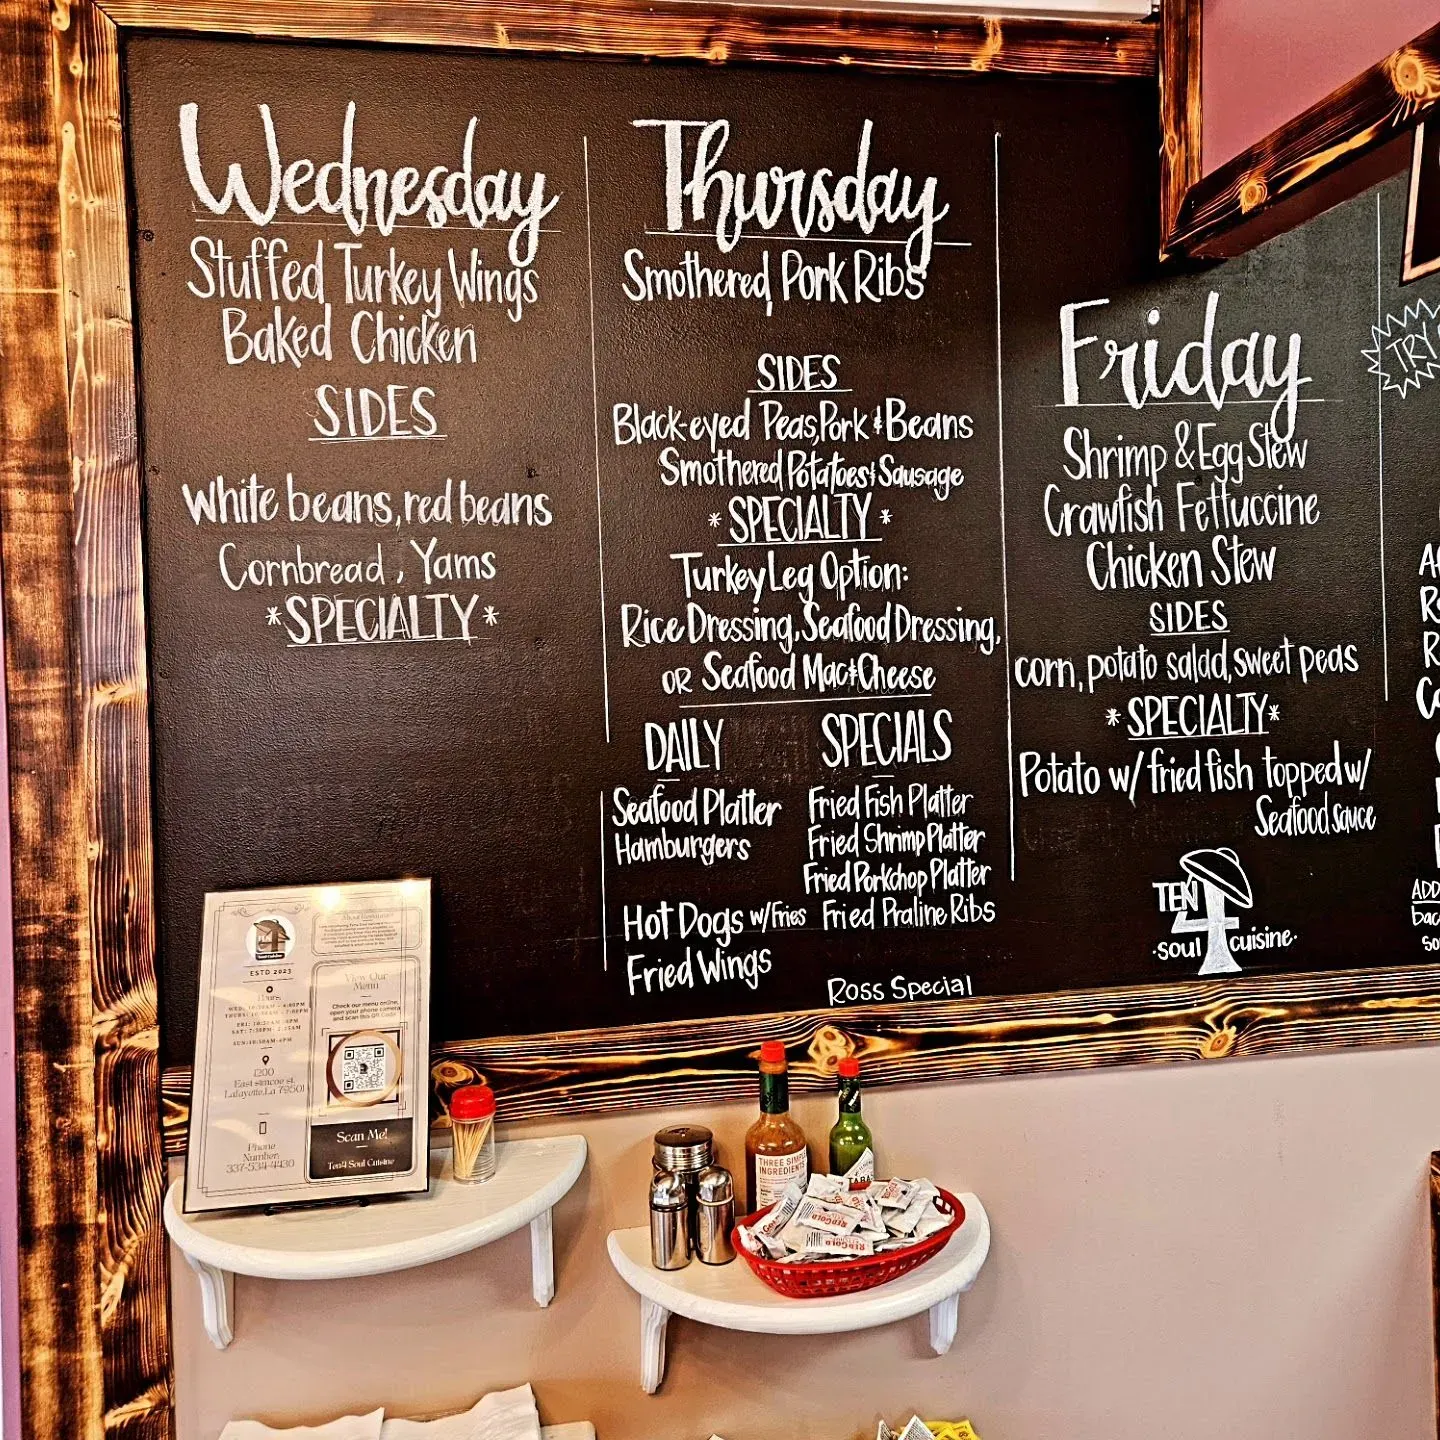 Wednesday
Stuffed Turkey Wings
Baked Chicken
SIDES
White beans, red beans
Cornbread, Yams
*SPECIALTY*
Thursday
Smothered Pork Ribs
SIDES
Black-eyed Peas, Pork & Beans
Smothered Potatoes & Sausage
*SPECIALTY*
Turkey Leg Option:
Rice Dressing, Seafood Dressing,
OR Seafood Mac & Cheese
DAILY SPECIALS
Seafood Platter
Hamburgers
Hot Dogs w/Fries
Fried Wings
Fried Fish Platter
Fried Shrimp Platter
Fried Porkchop Platter
Fried Praline Ribs
Ross Special
Friday
Shrimp & Egg Stew
Crawfish Fettuccine
Chicken Stew
SIDES
corn, potato salad, sweet peas
*SPECIALTY*
Potato w/ fried fish topped w/
Seafood sauce
TEN
4
·soul cuisine·
TRY
ADD
ESTD 2023
Hours
1200
East simcoe st.
Lafayette, La 70501
Phone
Number:
337-534-4430
View Our
Menu
Check our menu online,
open your phone camera
and scan this QR Code
Scan Me!
Ten4 Soul Cuisine
THREE SIMPLE
INGREDIENTS
REDGOLD